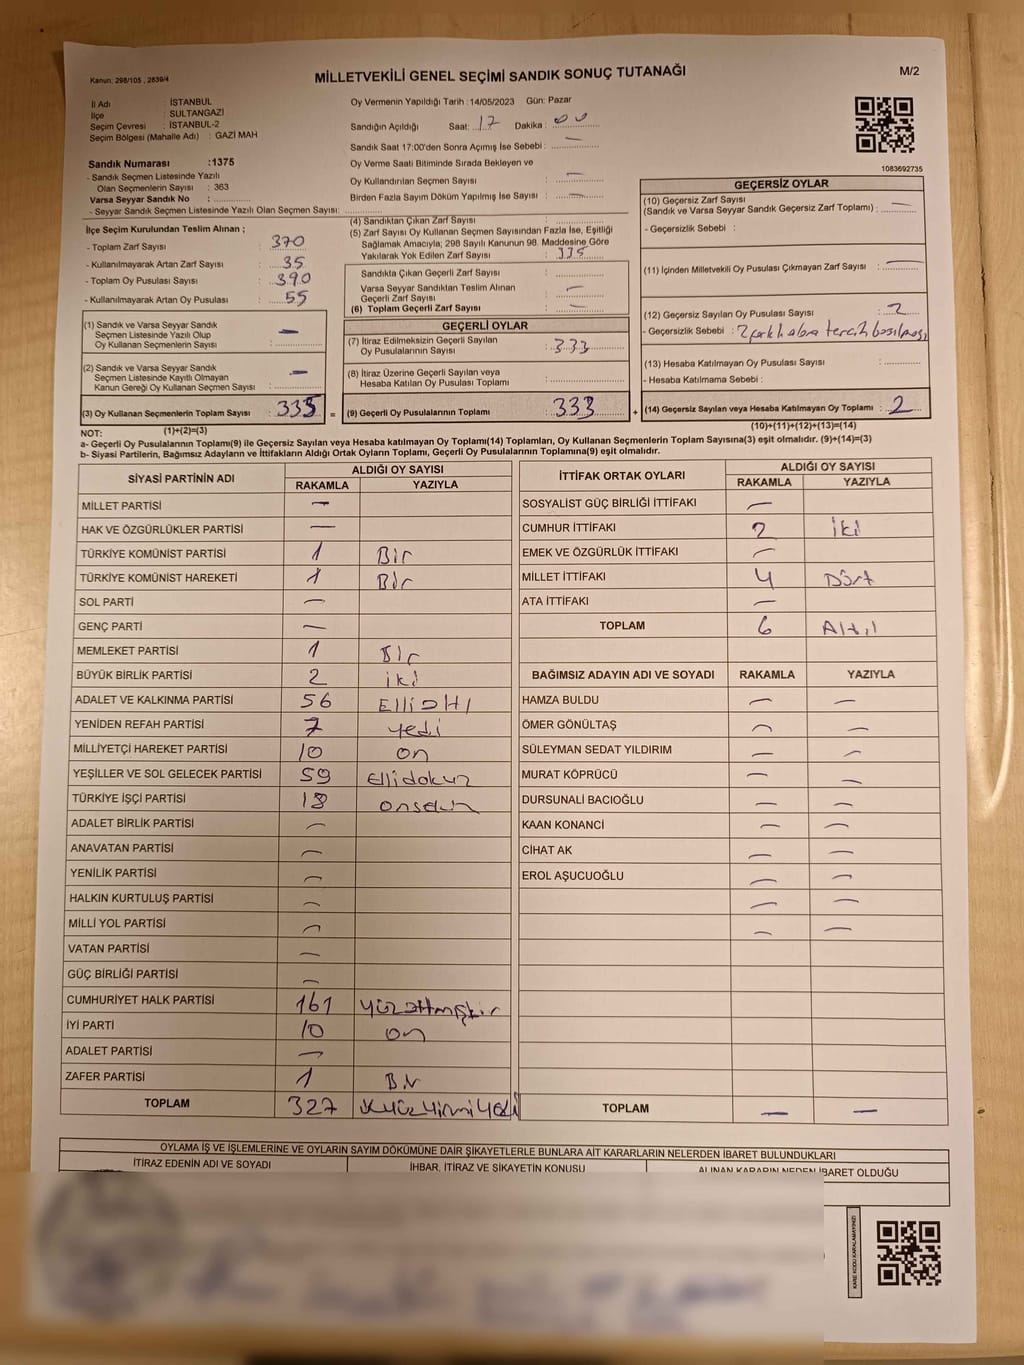 Kanun: 298/105 , 2839/4
MİLLETVEKİLİ GENEL SEÇİMİ SANDIK SONUÇ TUTANAĞI
M/2
İli Adı : İSTANBUL
İlçe : SULTANGAZİ
Seçim Çevresi : İSTANBUL-2
Seçim Bölgesi (Mahalle Adı) : GAZİ MAH
Sandık Numarası :1375
- Sandık Seçmen Listesinde Yazılı
Olan Seçmenlerin Sayısı : 363
Varsa Seyyar Sandık No :
- Seyyar Sandık Seçmen Listesinde Yazılı Olan Seçmen Sayısı:
Oy Vermenin Yapıldığı Tarih : 14/05/2023 Gün: Pazar
Sandığın Açıldığı Saat: 17 Dakika : 00
Sandık Saat 17:00'den Sonra Açımış İse Sebebi : —
Oy Verme Saati Bitiminde Sırada Bekleyen ve
Oy Kullandırılan Seçmen Sayısı : —
Birden Fazla Sayım Döküm Yapılmış İse Sayısı : —
1083692735
İlçe Seçim Kurulundan Teslim Alınan ;
- Toplam Zarf Sayısı : 370
- Kullanılmayarak Artan Zarf Sayısı : 35
- Toplam Oy Pusulası Sayısı : 390
- Kullanılmayarak Artan Oy Pusulası : 55
(1) Sandık ve Varsa Seyyar Sandık
Seçmen Listesinde Yazılı Olup
Oy Kullanan Seçmenlerin Sayısı : —
(2) Sandık ve Varsa Seyyar Sandık
Seçmen Listesinde Kayıtlı Olmayan
Kanun Gereği Oy Kullanan Seçmen Sayısı : —
(3) Oy Kullanan Seçmenlerin Toplam Sayısı : 335
(1)+(2)=(3)
(4) Sandıktan Çıkan Zarf Sayısı :
(5) Zarf Sayısı Oy Kullanan Seçmen Sayısından Fazla İse, Eşitliği
Sağlamak Amacıyla; 298 Sayılı Kanunun 98. Maddesine Göre
Yakılarak Yok Edilen Zarf Sayısı : 335
Sandıkta Çıkan Geçerli Zarf Sayısı :
Varsa Seyyar Sandıktan Teslim Alınan
Geçerli Zarf Sayısı : —
(6) Toplam Geçerli Zarf Sayısı : —
GEÇERLİ OYLAR
(7) İtiraz Edilmeksizin Geçerli Sayılan
Oy Pusulalarının Sayısı : 333
(8) İtiraz Üzerine Geçerli Sayılan veya
Hesaba Katılan Oy Pusulası Toplamı :
= (9) Geçerli Oy Pusulalarının Toplamı : 333
GEÇERSİZ OYLAR
(10) Geçersiz Zarf Sayısı
(Sandık ve Varsa Seyyar Sandık Geçersiz Zarf Toplamı) : —
- Geçersizlik Sebebi :
(11) İçinden Milletvekili Oy Pusulası Çıkmayan Zarf Sayısı : —
(12) Geçersiz Sayılan Oy Pusulası Sayısı : 2
- Geçersizlik Sebebi : 2 farklı alana tercih basılması
(13) Hesaba Katılmayan Oy Pusulası Sayısı :
- Hesaba Katılmama Sebebi :
+ (14) Geçersiz Sayılan veya Hesaba Katılmayan Oy Toplamı : 2
(10)+(11)+(12)+(13)=(14)
NOT:
a- Geçerli Oy Pusulalarının Toplamı(9) ile Geçersiz Sayılan veya Hesaba katılmayan Oy Toplamı(14) Toplamları, Oy Kullanan Seçmenlerin Toplam Sayısına(3) eşit olmalıdır. (9)+(14)=(3)
b- Siyasi Partilerin, Bağımsız Adayların ve İttifakların Aldığı Ortak Oyların Toplamı, Geçerli Oy Pusulalarının Toplamına(9) eşit olmalıdır.
SİYASİ PARTİNİN ADI
ALDIĞI OY SAYISI
RAKAMLA YAZIYLA
MİLLET PARTİSİ —
HAK VE ÖZGÜRLÜKLER PARTİSİ —
TÜRKİYE KOMÜNİST PARTİSİ 1 Bir
TÜRKİYE KOMÜNİST HAREKETİ 1 Bir
SOL PARTİ —
GENÇ PARTİ —
MEMLEKET PARTİSİ 1 Bir
BÜYÜK BİRLİK PARTİSİ 2 iki
ADALET VE KALKINMA PARTİSİ 56 Elli altı
YENİDEN REFAH PARTİSİ 7 yedi
MİLLİYETÇİ HAREKET PARTİSİ 10 on
YEŞİLLER VE SOL GELECEK PARTİSİ 59 Ellidokuz
TÜRKİYE İŞÇİ PARTİSİ 18 onsekiz
ADALET BİRLİK PARTİSİ —
ANAVATAN PARTİSİ —
YENİLİK PARTİSİ —
HALKIN KURTULUŞ PARTİSİ —
MİLLİ YOL PARTİSİ —
VATAN PARTİSİ —
GÜÇ BİRLİĞİ PARTİSİ —
CUMHURİYET HALK PARTİSİ 161 yüzaltmışbir
İYİ PARTİ 10 on
ADALET PARTİSİ —
ZAFER PARTİSİ 1 Bir
TOPLAM 327 üçyüzyirmiyedi
İTTİFAK ORTAK OYLARI
ALDIĞI OY SAYISI
RAKAMLA YAZIYLA
SOSYALİST GÜÇ BİRLİĞİ İTTİFAKI —
CUMHUR İTTİFAKI 2 iki
EMEK VE ÖZGÜRLÜK İTTİFAKI —
MİLLET İTTİFAKI 4 Dört
ATA İTTİFAKI —
TOPLAM 6 Altı
BAĞIMSIZ ADAYIN ADI VE SOYADI RAKAMLA YAZIYLA
HAMZA BULDU — —
ÖMER GÖNÜLTAŞ — —
SÜLEYMAN SEDAT YILDIRIM — —
MURAT KÖPRÜCÜ — —
DURSUNALİ BACIOĞLU — —
KAAN KONANCİ — —
CİHAT AK — —
EROL AŞUCUOĞLU — —
— —
— —
TOPLAM — —
OYLAMA İŞ VE İŞLEMLERİNE VE OYLARIN SAYIM DÖKÜMÜNE DAİR ŞİKAYETLERLE BUNLARA AİT KARARLARIN NELERDEN İBARET BULUNDUKLARI
İTİRAZ EDENİN ADI VE SOYADI
İHBAR, İTİRAZ VE ŞİKAYETİN KONUSU
ALINAN KARARIN NEDEN İBARET OLDUĞU
KARE KODU KARALAMAYINIZ!